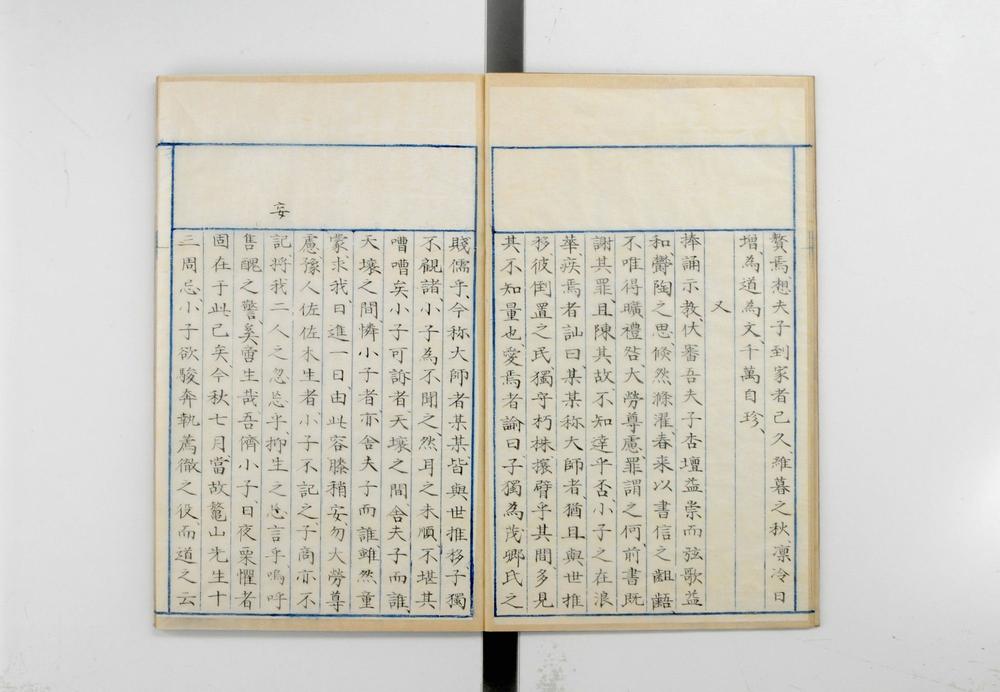 贅焉、想夫子到家者已久、維暮之秋、凛冷日
増、為道為文、千萬自珍、
又
捧誦示教、伏審吾夫子杏壇益崇而弦歌益
和、欝陶之思、倏然滌濯、春来以書信之齟齬、
不唯得曠禮咎、大勞尊慮、罪謂之何、前書既
謝其罪、且陳其故、不知達乎否、小子之在浪
華、疾焉者訕曰、某某称大師者、猶且與世推
移、彼倒置之民、獨守朽株、攘臂乎其間、多見
其不知量也、愛焉者諭曰、子獨為茂卿氏之
賎儒乎、今称大師者某某、皆與世推移、子獨
不觀諸、小子為不聞之、然耳之未順、不堪其
嘈嘈矣、小子可訴者、天壤之間、舎夫子而誰、
天壤之間、憐小子者、亦舎夫子而誰、雖然童
蒙求我、日進一日、由此容膝稍安、勿大勞尊
慮、豫人佐佐木生者、小子不記之、子商亦不
記、将我二人之忽忘乎、抑生之忘言乎、嗚呼
妄
售醜之警矣、啻生哉、吾儕小子、日夜栗懼者、
固在于此已矣、今秋七月、當故鳌山先生十
三周忌、小子欲駿奔執薦徹之役、而道之云